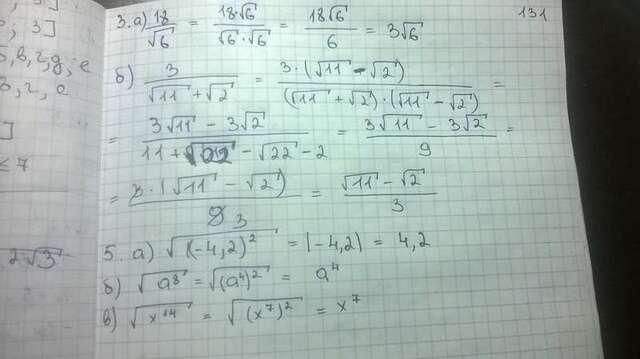 131
; 3]
б, в, г, д, е
в, г, е
]
≤ 7
2√3
3. а) 18/√6 = 18·√6/√6·√6 = 18√6/6 = 3√6
б) 3/√11 + √2 = 3·(√11 - √2)/(√11 + √2)·(√11 - √2) =
= 3√11 - 3√2/11 + √22 - √22 - 2 = 3√11 - 3√2/9 =
= 3·(√11 - √2)/9 3 = √11 - √2/3
5. а) √(-4,2)² = |-4,2| = 4,2
б) √a⁸ = √(a⁴)² = a⁴
в) √x¹⁴ = √(x⁷)² = x⁷